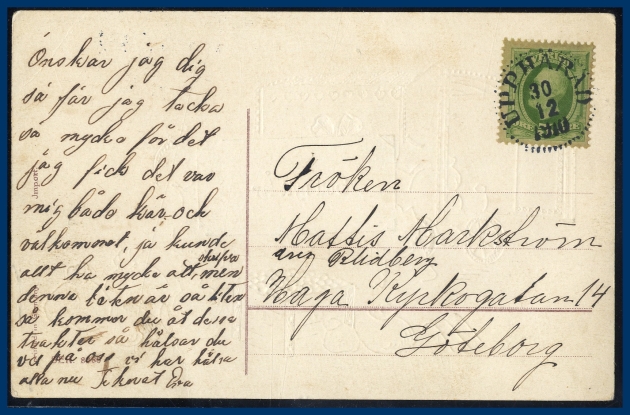 Önskar jag dig
så får jag tacka
så mycke för det
jag fick det var
mig både kär och
välkommet, ja kunde
allt ha mycke att skrifva men
denna är så liten
så kommer du åt dessa
trakter så hälsar du
väl på oss vi har
alla nu
UPPHÄRAD
30
12
1910
Fröken
Mattis Markström
adr Blidberg
Haga Kyrkogatan 14
Göteborg